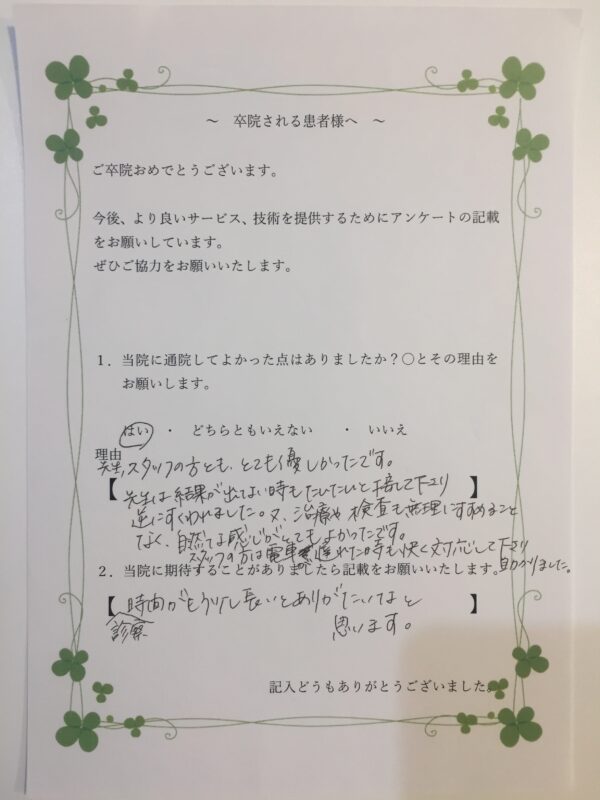 ～　卒院される患者様へ　～
ご卒院おめでとうございます。
今後、より良いサービス、技術を提供するためにアンケートの記載
をお願いしています。
ぜひご協力をお願いいたします。
1．当院に通院してよかった点はありましたか？○とその理由を
お願いします。
はい　・　どちらともいえない　・　いいえ
理由
先生、スタッフの方とも、とても優しかったです。
【先生は結果が出ない時もたんたんと接して下さり
逆にすくわれました。又、治療や検査も無理にすすめること】
なく、自然な感じがとてもよかったです。
スタッフの方は電車が遅れた時も快く対応して下さり
助かりました。
2．当院に期待することがありましたら記載をお願いいたします。
【診察時間がもう少し長いとありがたいなと】
思います。
記入どうもありがとうございました。